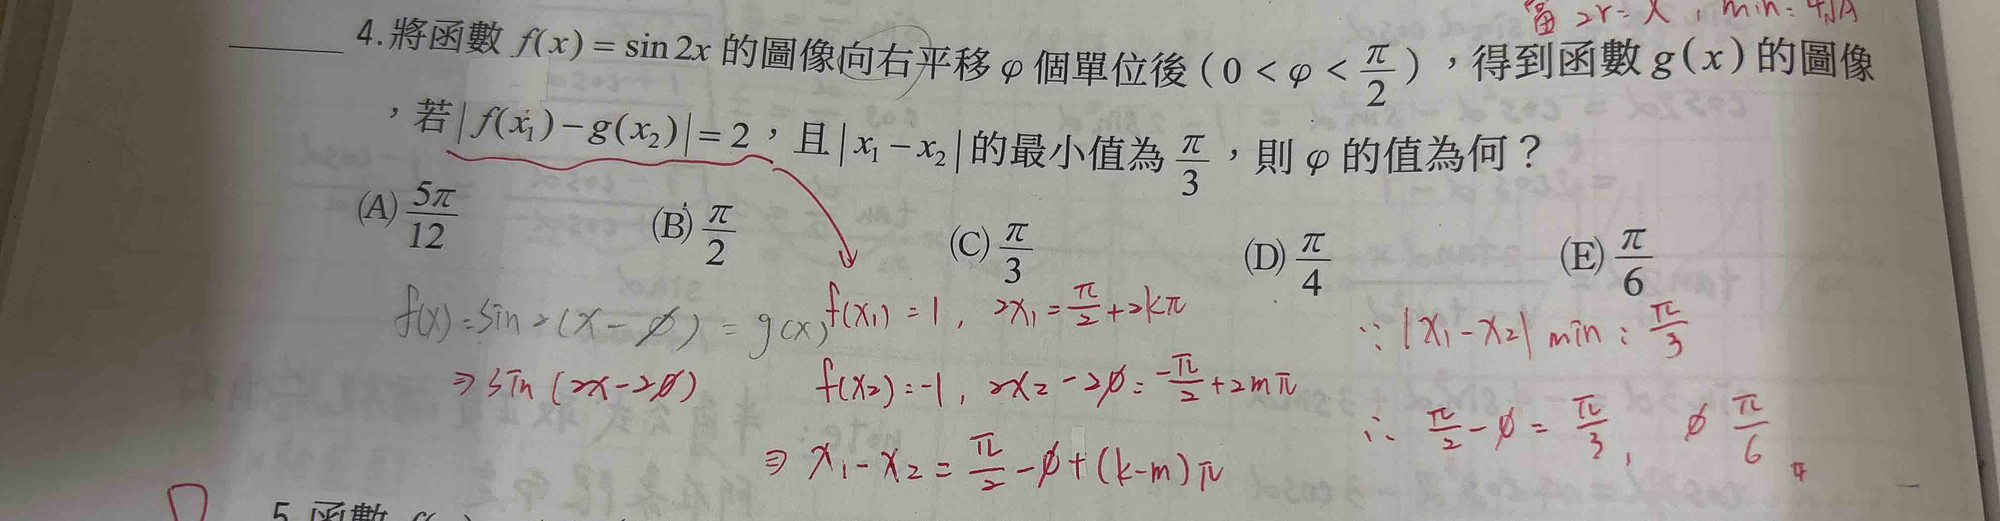 當 2r = x , min: 4√A
4.將函數 f(x) = sin 2x 的圖像向右平移 φ 個單位後 ( 0 < φ < π/2 ) ,得到函數 g(x) 的圖像
,若 | f(x₁) − g(x₂) | = 2 ,且 | x₁ − x₂ | 的最小值為 π/3 ,則 φ 的值為何?
(A) 5π/12 (B) π/2 (C) π/3 (D) π/4 (E) π/6
f(x) = sin 2(x − ø) = g(x)
⇒ sin (2x − 2ø)
f(x₁) = 1 , 2x₁ = π/2 + 2kπ
f(x₂) = −1 , 2x₂ − 2ø = −π/2 + 2mπ
⇒ x₁ − x₂ = π/2 − ø + (k−m)π
∵ |x₁ − x₂| min : π/3
∴ π/2 − ø = π/3 , ø π/6 #
5.函數